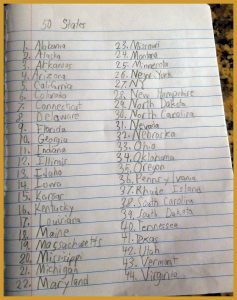 50 States
1. Alabama
2. Alaska
3. Arkansas
4. Arizona
5. California
6. Colorado
7. Connecticut
8. Delaware
9. Florida
10. Georgia
11. Indiana
12.
13. Idaho
14. Iowa
15. Kansas
16. Kentucky
17. Louisiana
18. Maine
19. Massachusetts
20.
21. Michigan
22. Maryland
23. Missouri
24. Montana
25. Minnesota
26. New York
27. NJ
28. New Hampshire
29. North Dakota
30. North Carolina
31. Nevada
32. Nebraska
33. Ohio
34. Oklahoma
35. Oregon
36.
37. Rhode Island
38. South Carolina
39. South Dakota
40. Tennessee
41. Texas
42. Utah
43. Vermont
44. Virginia